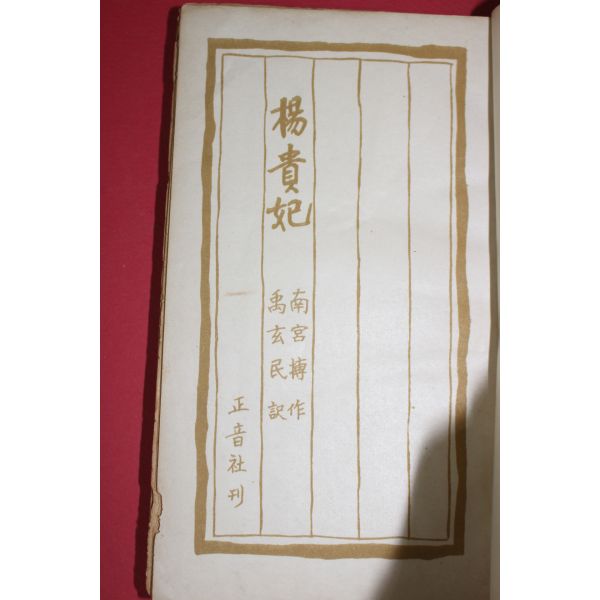 楊貴妃
南宮搏作
禹玄民訳
正音社刊